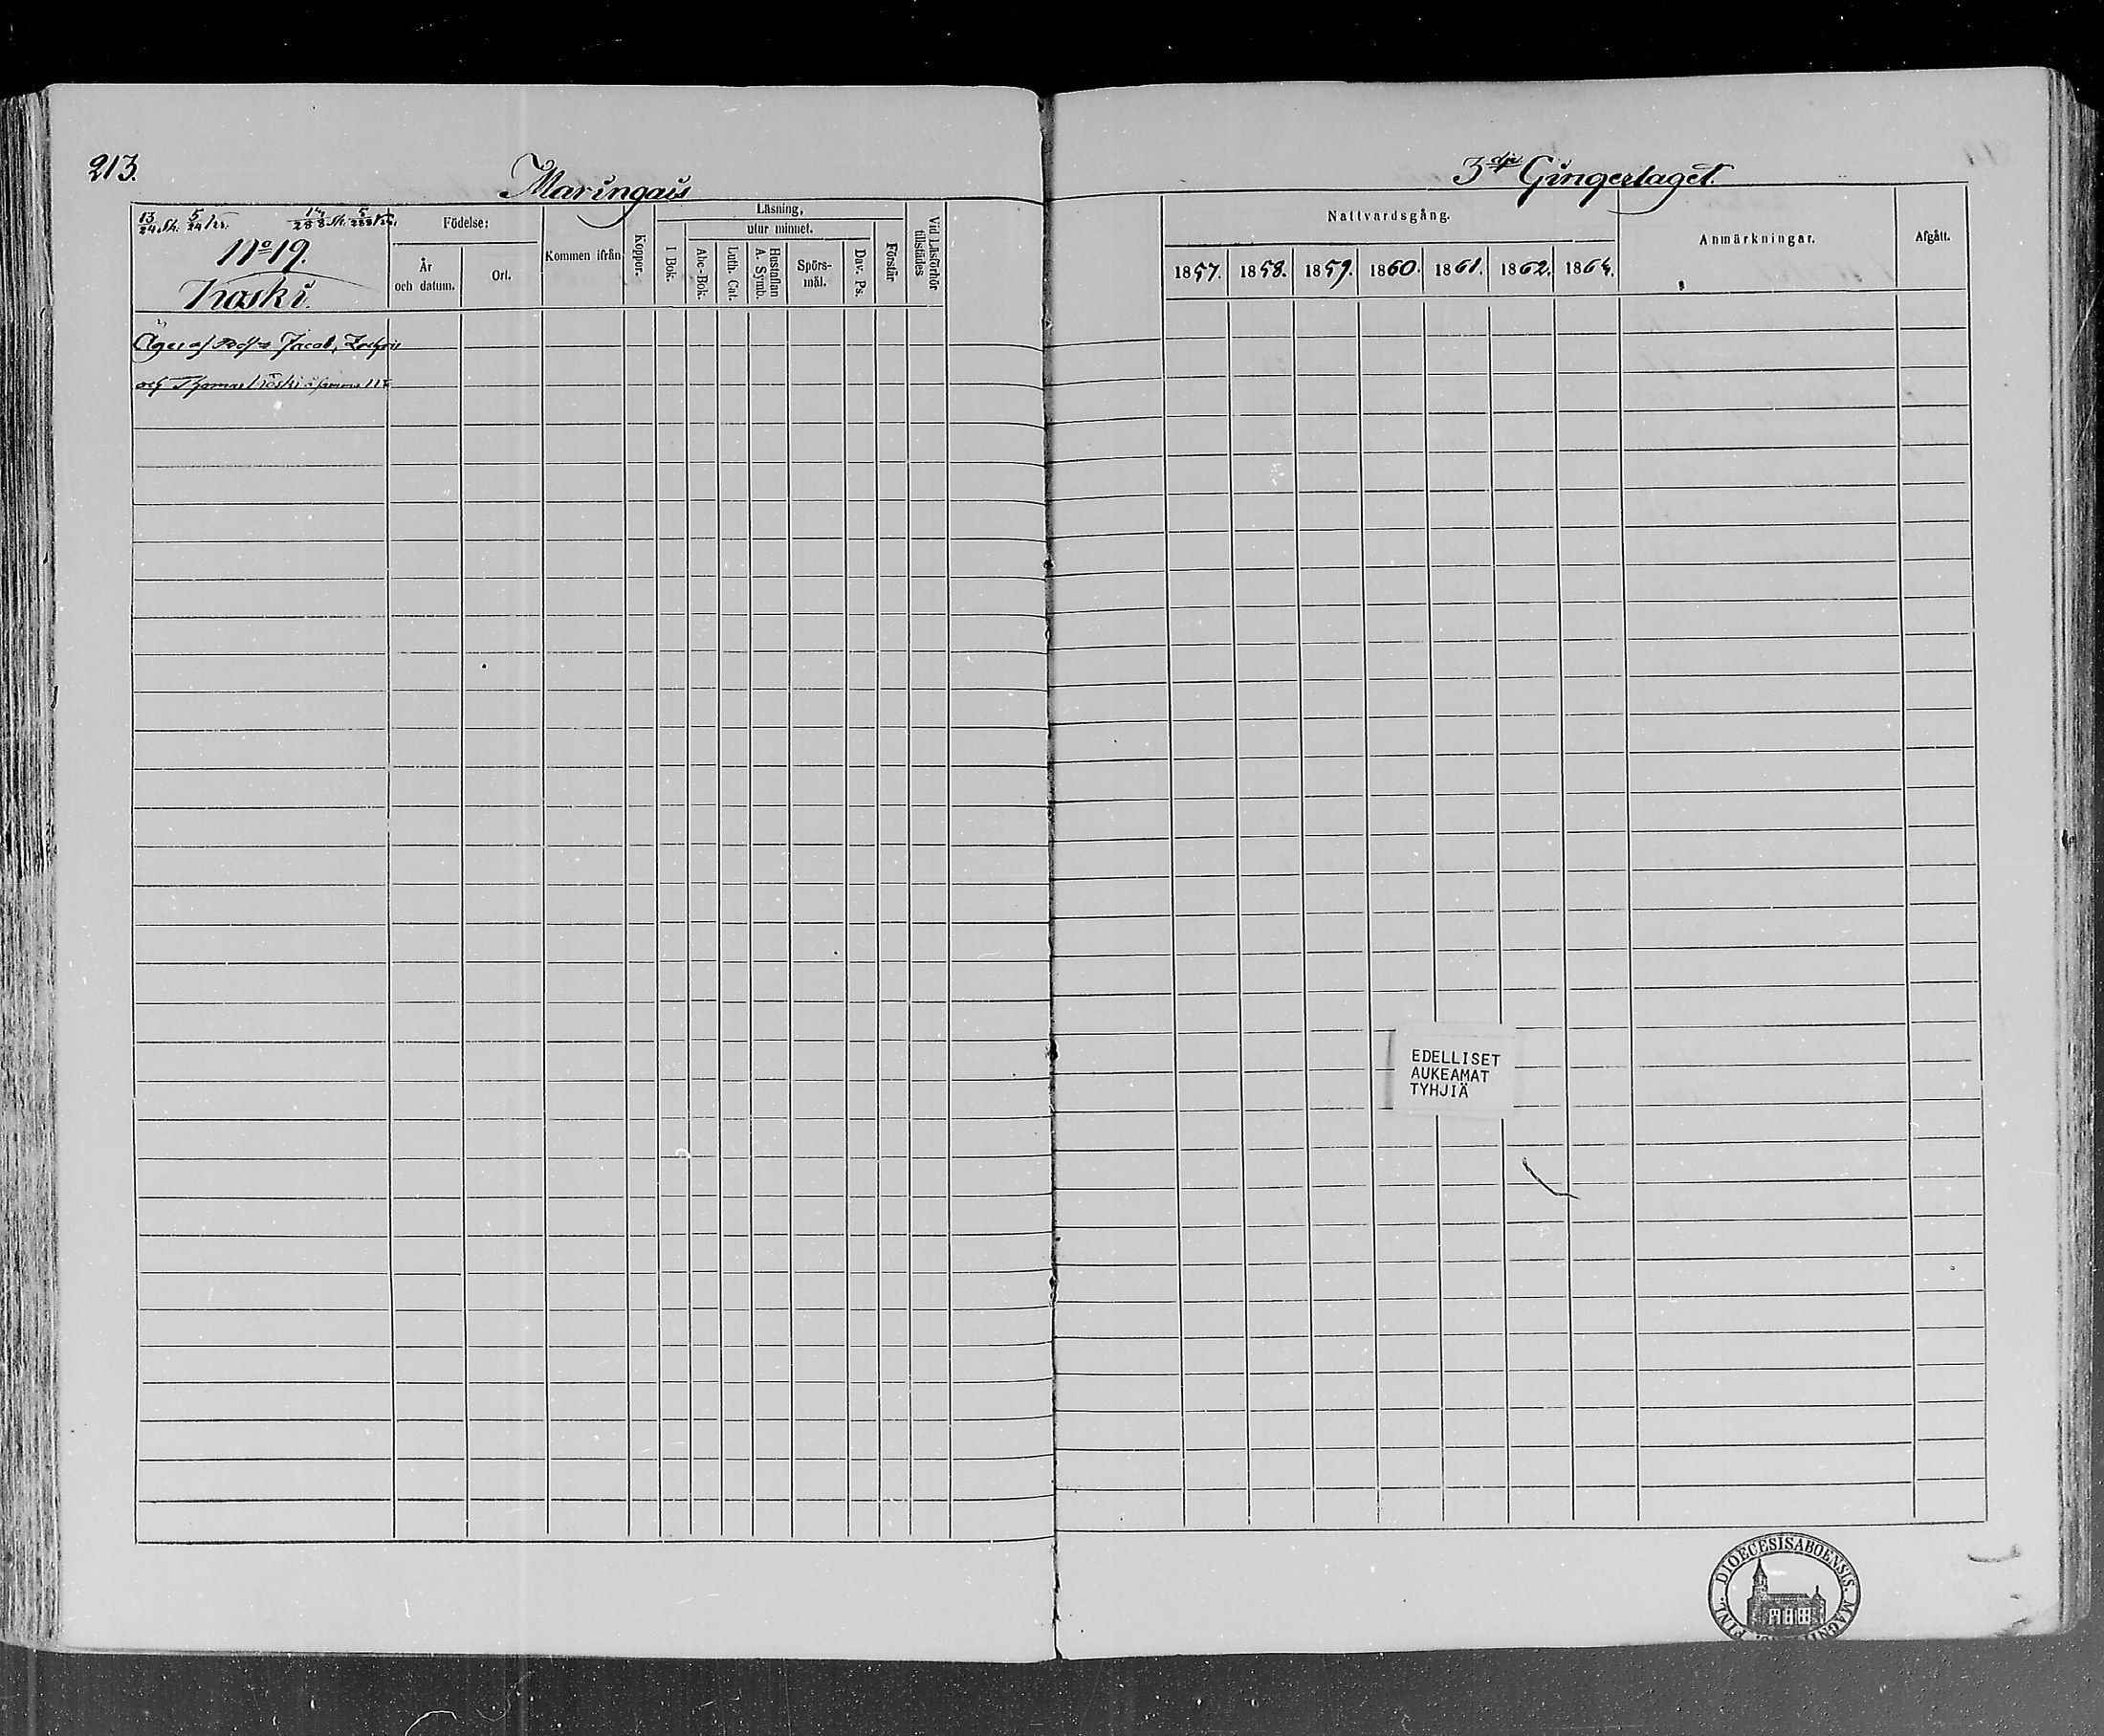 213.
Maringais
3dje Gingerlaget.
13/24 sk. 5/24 kr. 14/288 sk. 5/288 kr.
No 19.
Kaski.
Födelse:
År
och datum.
Ort.
Kommen ifrån
Koppor.
Läsning,
utur minnet.
I Bok.
Abc-Bok.
Luth. Cat.
Hustaflan
A. Symb.
Spörs-
mål.
Dav. Ps.
Förstår
Vid Läsförhör
tillstädes
Nattvardsgång.
1857. 1858. 1859. 1860. 1861. 1862. 1864.
Anmärkningar.
Afgått.
Äges af Jacob,
och Thomas
EDELLISET
AUKEAMAT
TYHJIÄ
DIOECESIS ABOENSIS. FINL.